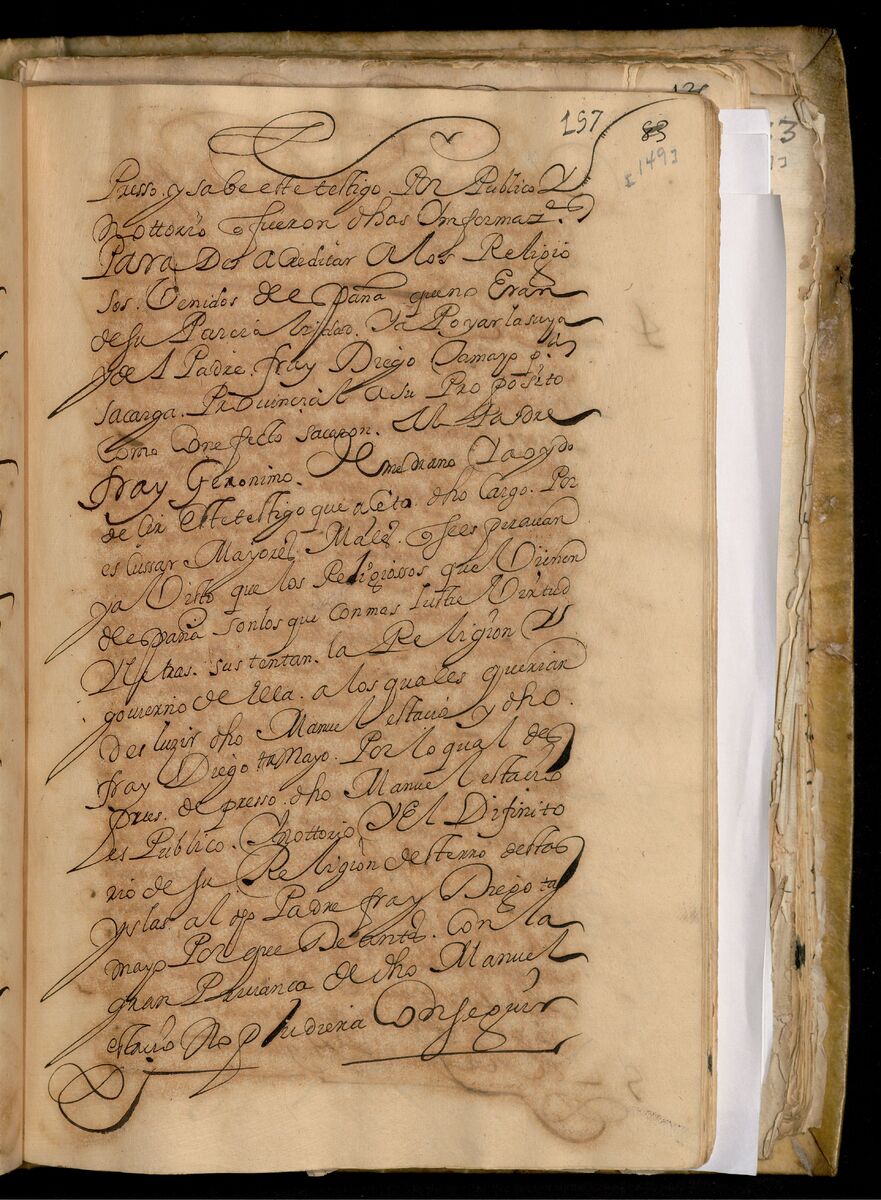 157 83
[149]
Presso. y sabe este testigo. Por Publico Y
Nottorio q fueron dhas Informaz.es
Para Des acreditar a los Religio
sos. Venidos de españa que no Eran
de su Parcialidad. Ya Poyar la suya
y del Padre. fray Diego tamayo p.a
sacar a. Provincial a su Proposito
Como Con efecto sacaron. Al Padre
fray Geronimo. De medrano Y a oydo
decir este testigo que aceto. dho Cargo. Por
es cussar Mayores Males. q se es peravan
ya Visto que los Religiossos que Vienen
de españa son los que con mas lustre Virtud
Y letras. sustentan. la Religion Y
govierno de Ella. a los quales querian
des luzir dho Manuel estacio y dho.
fray Diego taMayo. Por lo qual des
pues. de presso. dho Manuel estacio
es Publico. Y nottorio Y El Difinito
rio de su Religion desterro destas
yslas. al dho Padre fray Diego ta
mayo Por que De antes. Con la
gran Privanca de dho Manuel
estacio No pudiera Conseguir